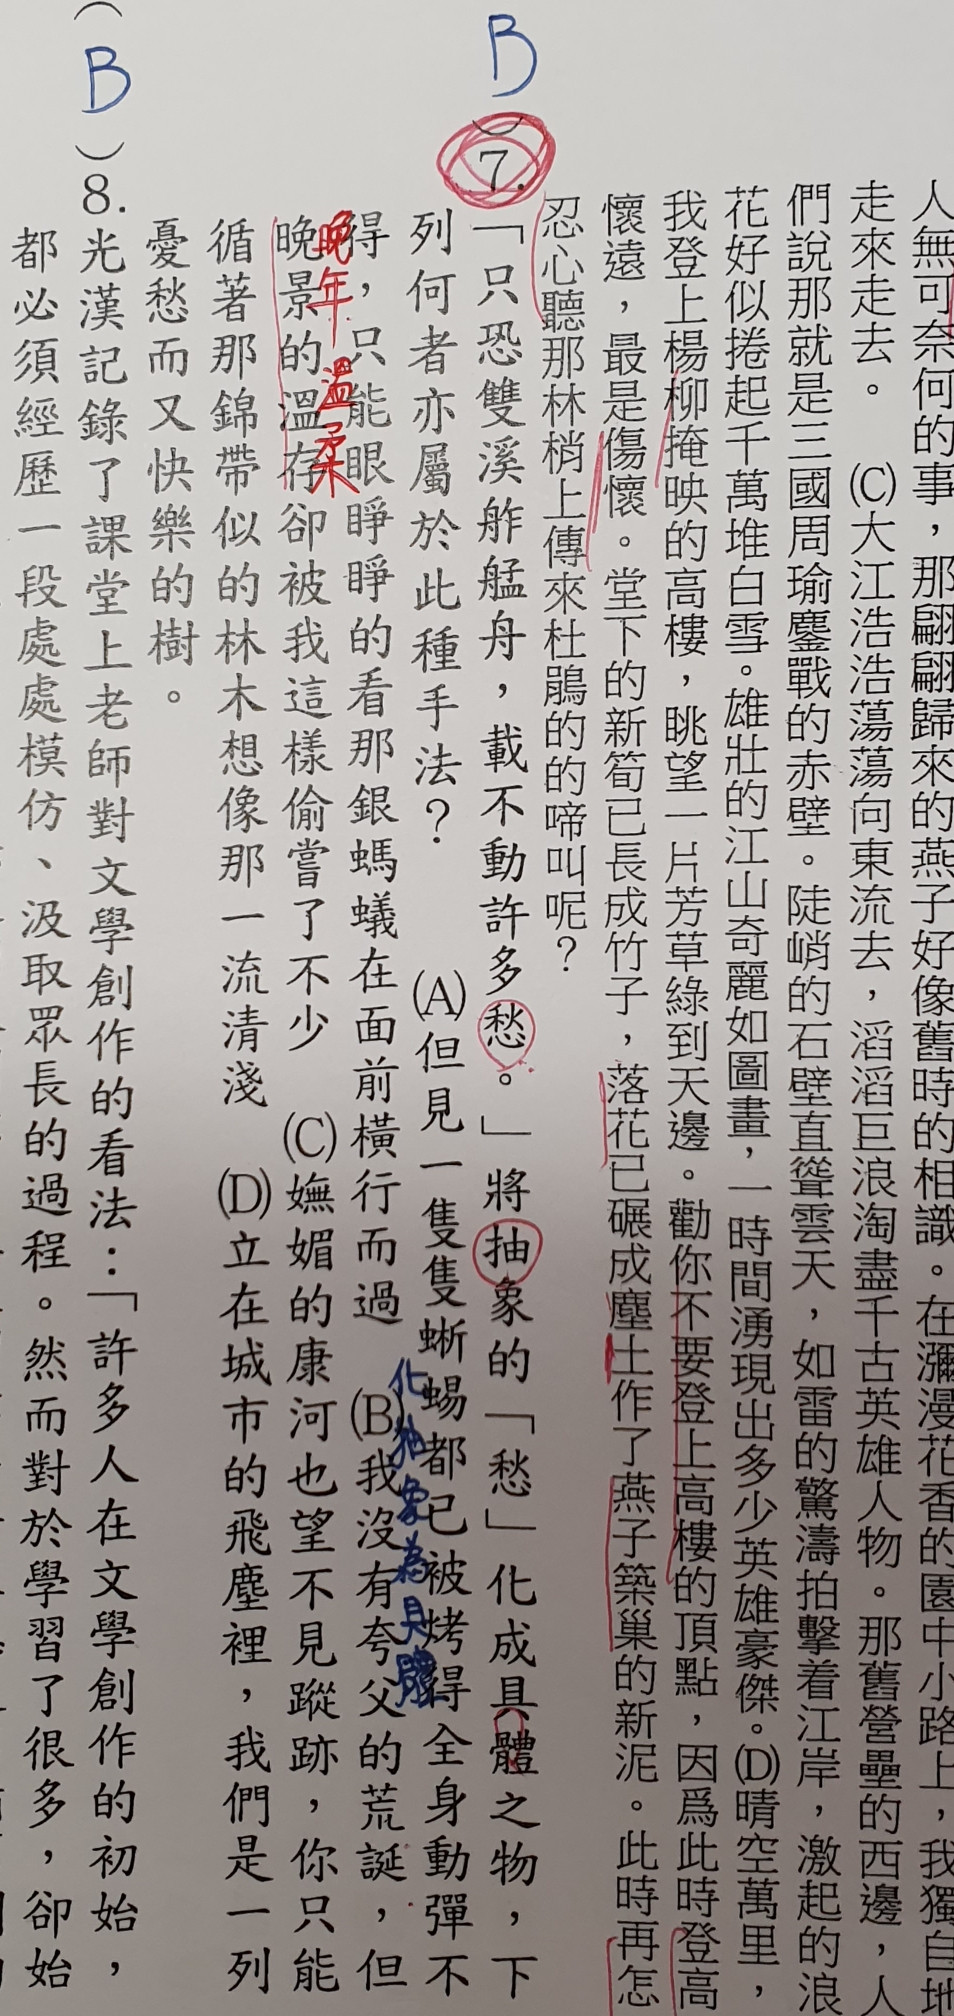 人無可奈何的事，那翩翩歸來的燕子好像舊時的相識。在瀰漫花香的園中小路上，我獨自地
走來走去。 (C)大江浩浩蕩蕩向東流去，滔滔巨浪淘盡千古英雄人物。那舊營壘的西邊，人
們說那就是三國周瑜鏖戰的赤壁。陡峭的石壁直聳雲天，如雷的驚濤拍擊着江岸，激起的浪
花好似捲起千萬堆白雪。雄壯的江山奇麗如圖畫，一時間湧現出多少英雄豪傑。(D)晴空萬里，
我登上楊柳掩映的高樓，眺望一片芳草綠到天邊。勸你不要登上高樓的頂點，因爲此時登高
懷遠，最是傷懷。堂下的新筍已長成竹子，落花已碾成塵土作了燕子築巢的新泥。此時再怎
忍心聽那林梢上傳來杜鵑的的啼叫呢？
B
)7.「只恐雙溪舴艋舟，載不動許多愁。」將抽象的「愁」化成具體之物，下
列何者亦屬於此種手法？ (A)但見一隻隻蜥蜴都已被烤得全身動彈不
化抽象為具體
得，只能眼睜睜的看那銀螞蟻在面前橫行而過 (B)我沒有夸父的荒誕，但
晚年 溫柔
晚景的溫存卻被我這樣偷嘗了不少 (C)嫵媚的康河也望不見蹤跡，你只能
循著那錦帶似的林木想像那一流清淺 (D)立在城市的飛塵裡，我們是一列
憂愁而又快樂的樹。
( B )8.光漢記錄了課堂上老師對文學創作的看法：「許多人在文學創作的初始，
都必須經歷一段處處模仿、汲取眾長的過程。然而對於學習了很多，卻始